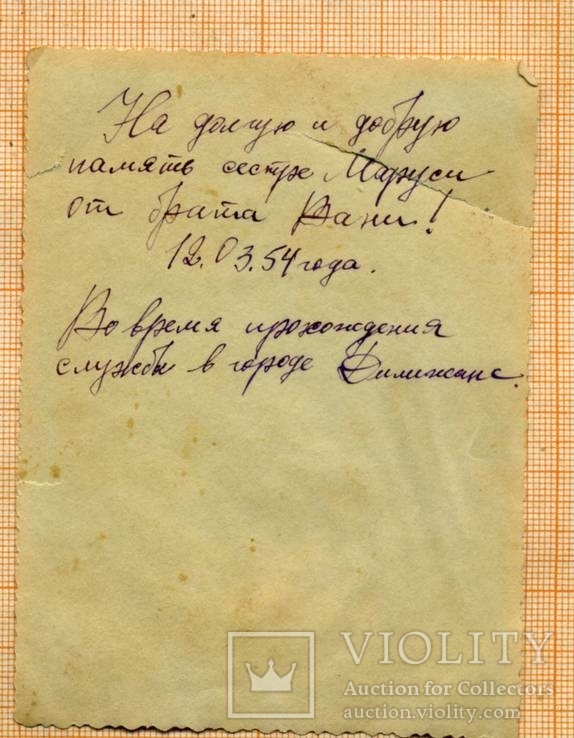 На долгую и добрую
память сестре Маруси
от брата Вани!
12.03.54 года.
Во время прохождения
службы в городе Дилижанс.
VIOLITY
Auction for Collectors
auction.violity.com